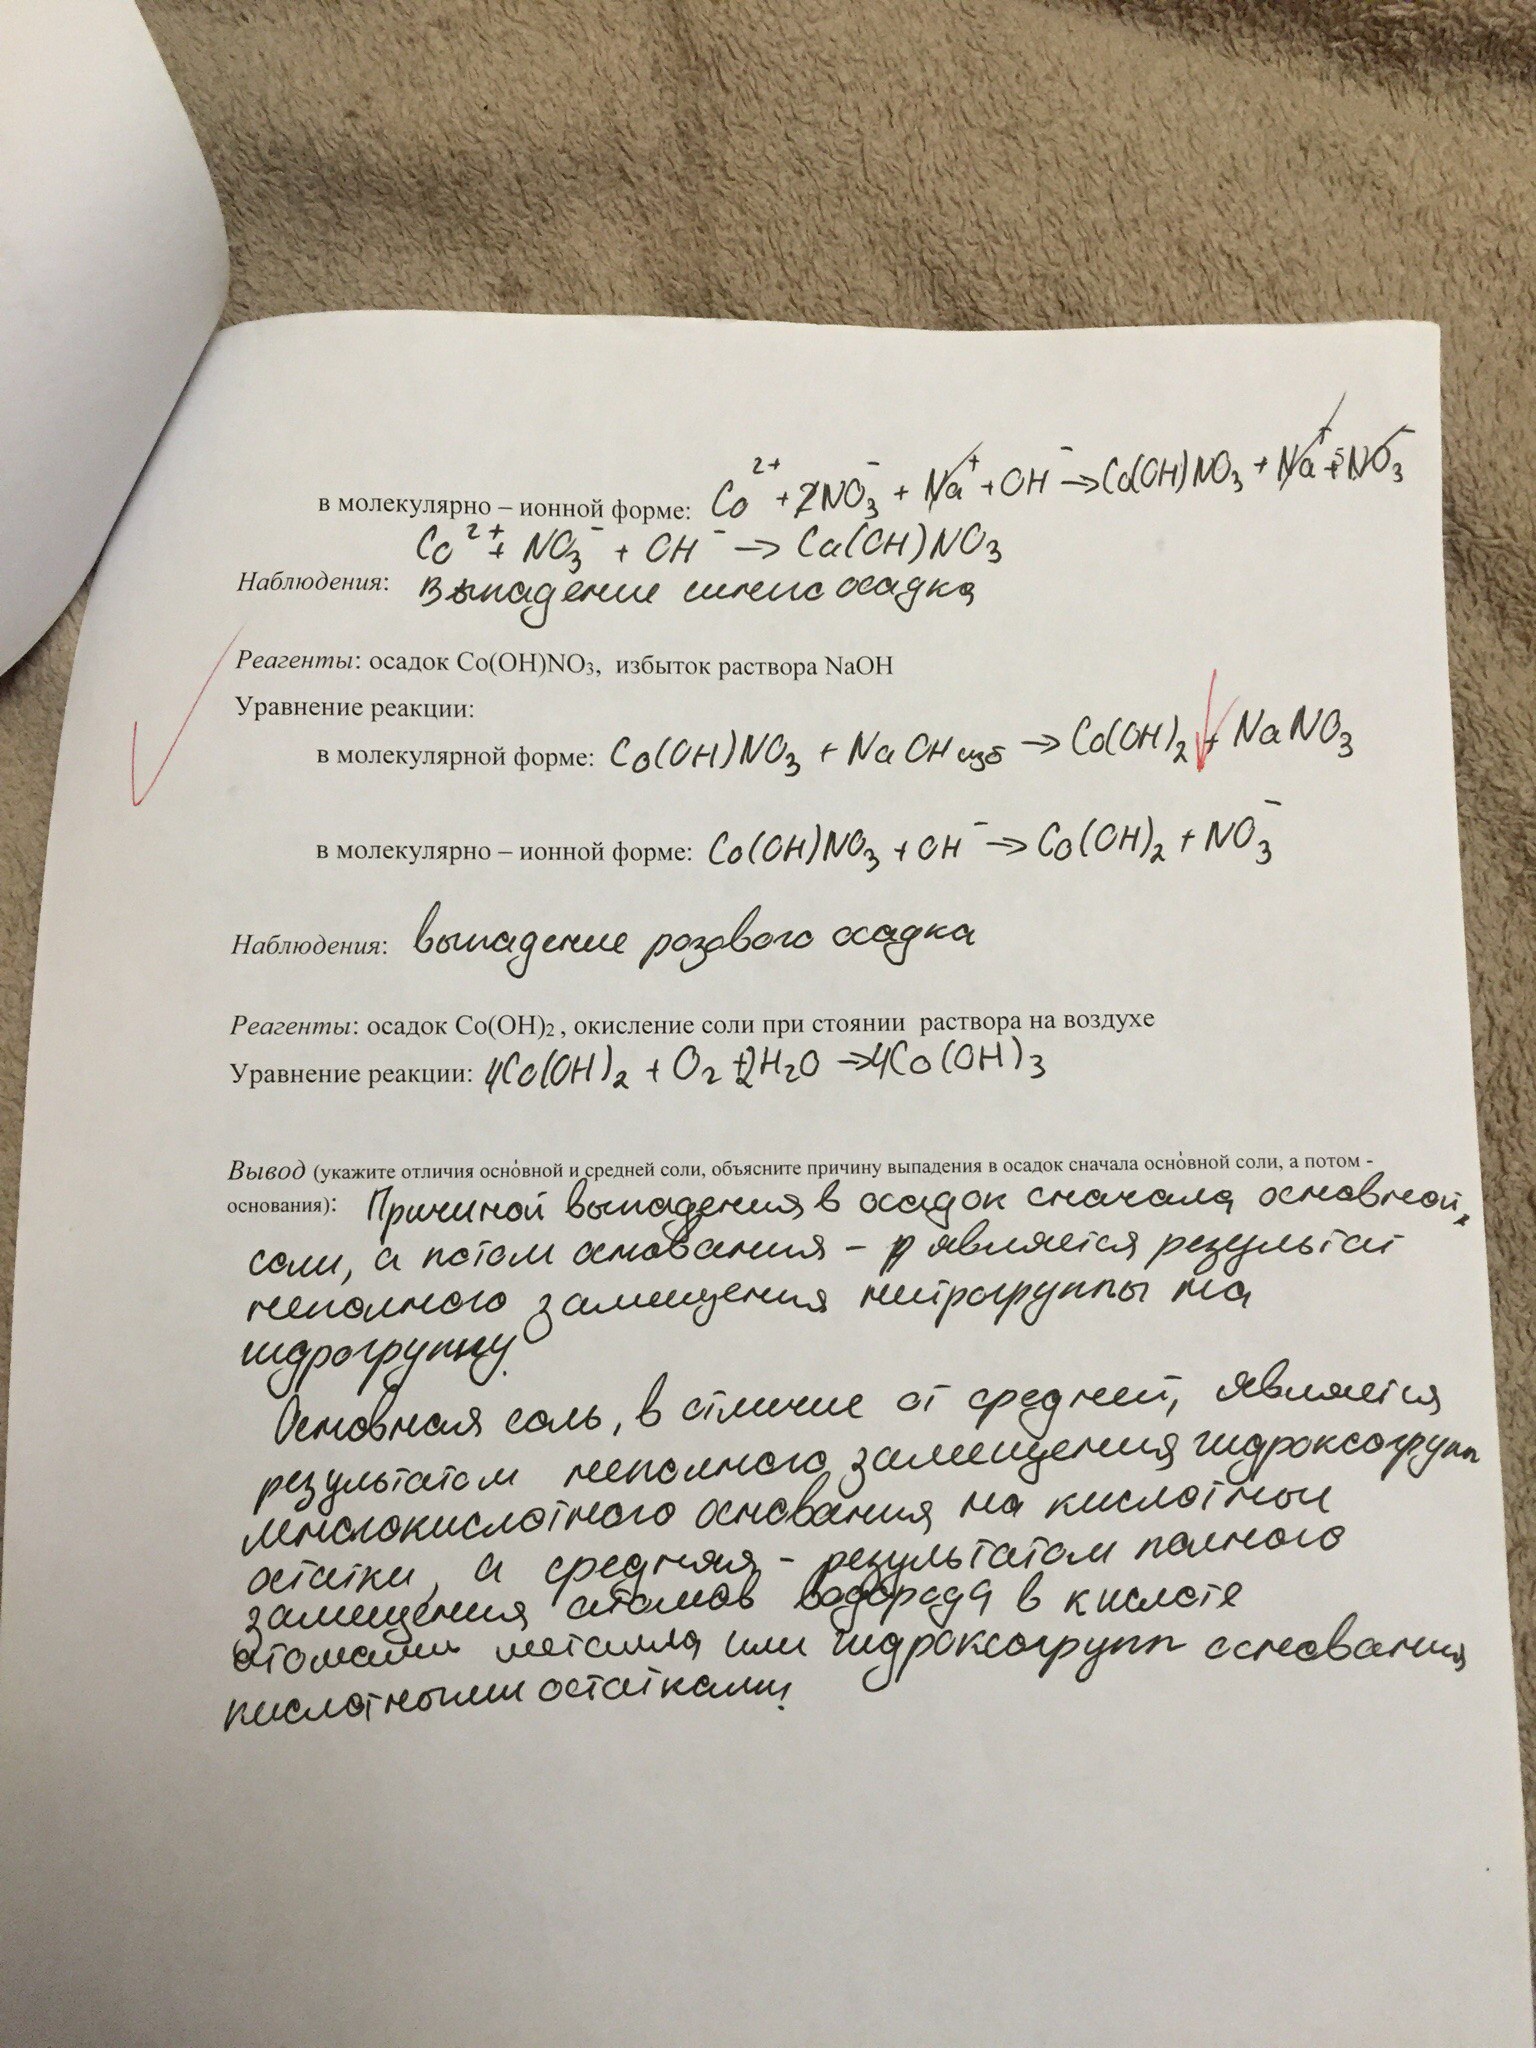 в молекулярно – ионной форме: Co²⁺ + 2NO₃⁻ + Na⁺ + OH⁻ → Co(OH)NO₃ + Na⁺ + NO₃⁻
Co²⁺ + NO₃⁻ + OH⁻ → Co(OH)NO₃
Наблюдения: Выпадение синего осадка
Реагенты: осадок Co(OH)NO₃, избыток раствора NaOH
Уравнение реакции:
в молекулярной форме: Co(OH)NO₃ + NaOH изб → Co(OH)₂↓ + NaNO₃
в молекулярно – ионной форме: Co(OH)NO₃ + OH⁻ → Co(OH)₂ + NO₃⁻
Наблюдения: выпадение розового осадка
Реагенты: осадок Co(OH)₂ , окисление соли при стоянии раствора на воздухе
Уравнение реакции: 4Co(OH)₂ + O₂ + 2H₂O → 4Co(OH)₃
Вывод (укажите отличия осно́вной и средней соли, объясните причину выпадения в осадок сначала осно́вной соли, а потом -
основания): Причиной выпадения в осадок сначала основной
соли, а потом основания – является результат
неполного замещения нитрогруппы на
гидрогруппу.
Основная соль, в отличие от средней, является
результатом неполного замещения гидроксогрупп
многокислотного основания на кислотные
остатки, а средняя – результатом полного
замещения атомов водорода в кислоте
атомами металла или гидроксогрупп основания
кислотными остатками.